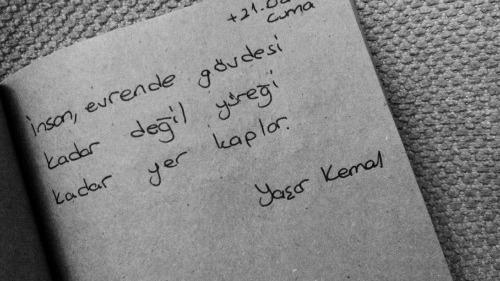 Cuma
İnsan, evrende gövdesi
kadar değil yüreği
kadar yer kaplar.
Yaşar Kemal